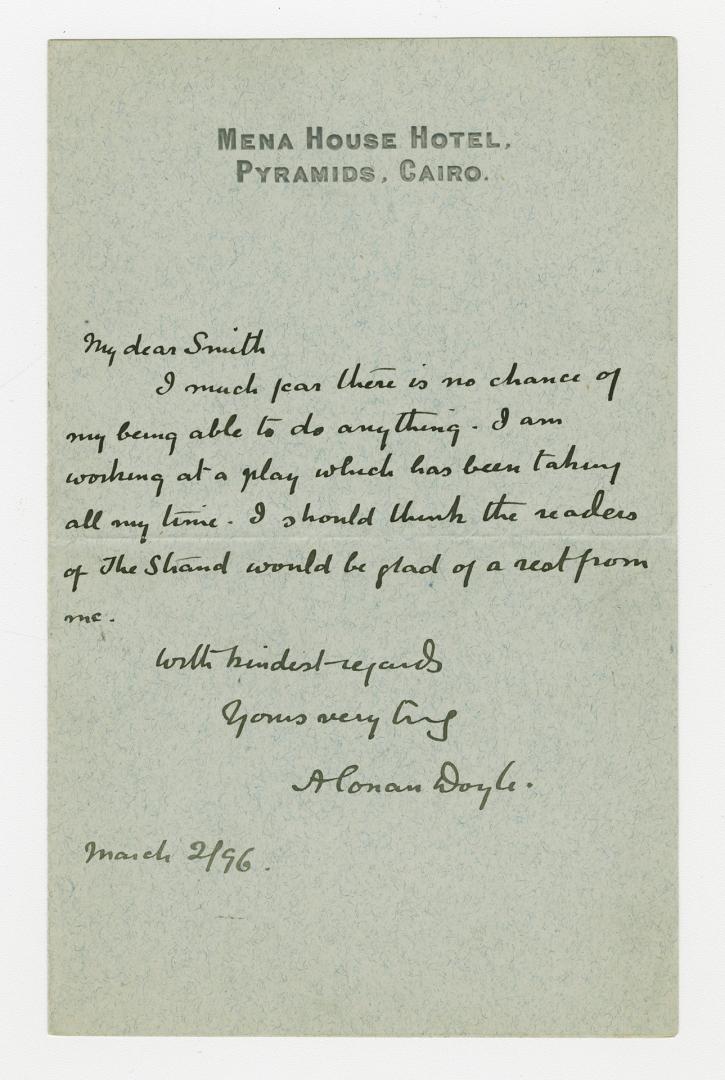 MENA HOUSE HOTEL,
PYRAMIDS, CAIRO.
My dear Smith
I much fear there is no chance of
my being able to do anything. I am
working at a play which has been taking
all my time. I should think the readers
of The Strand would be glad of a rest from
me.
With kindest regards
Yours very truly
A Conan Doyle.
March 2/96.